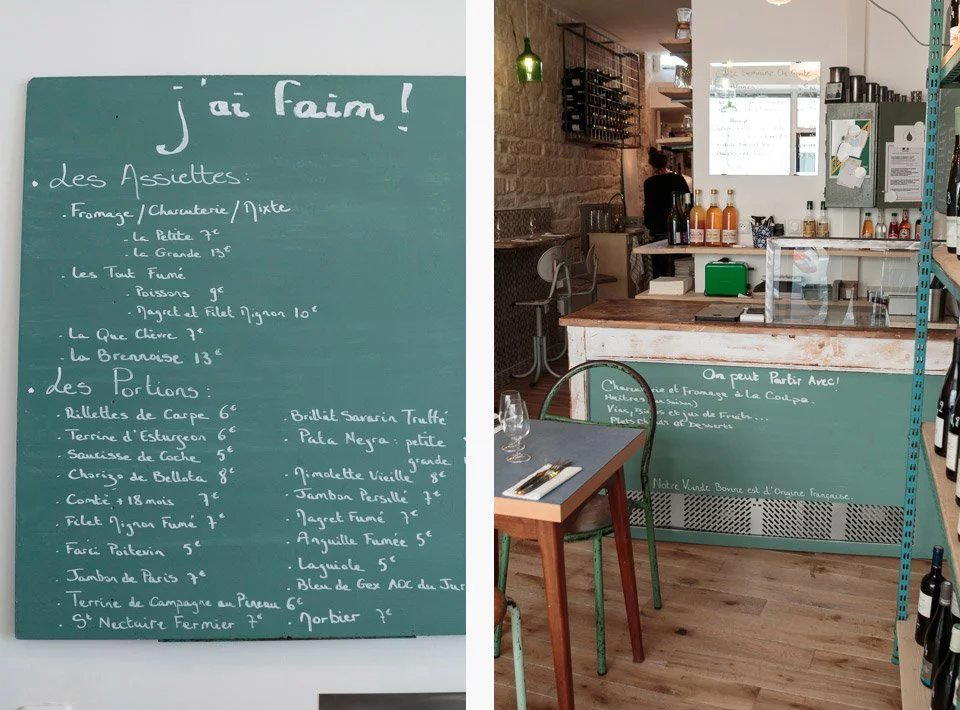 j'ai faim !
. Les Assiettes :
. Fromage / Charcuterie / Mixte
- La Petite 7€
- La Grande 13€
. Les Tout Fumé
- Poissons 9€
- Magret et Filet Mignon 10€
. La Que Chèvre 7€
. La Brennoise 13€
. Les Portions :
. Rillettes de Carpe 6€
. Terrine d'Esturgeon 6€
. Saucisse de Coche 5€
. Chorizo de Bellota 8€
. Comté +18 mois 7€
. Filet Mignon Fumé 7€
. Farci Poitevin 5€
. Jambon de Paris 7€
. Terrine de Campagne au Pineau 6€
. St Nectaire Fermier 7€
. Brillat Savarin Truffé
. Pata Negra : petite
grande
. Mimolette Vieille 8€
. Jambon Persillé 7€
. Magret Fumé 7€
. Anguille Fumée 5€
. Laguiole 5€
. Bleu de Gex AOC du Jur
. Morbier 7€
On peut Partir Avec!
Charcuterie et Fromage à la Coupe.
Vins, Bières et jus de Fruits...
Plats Chauds et Desserts
Notre Viande Bovine est d'Origine Française.